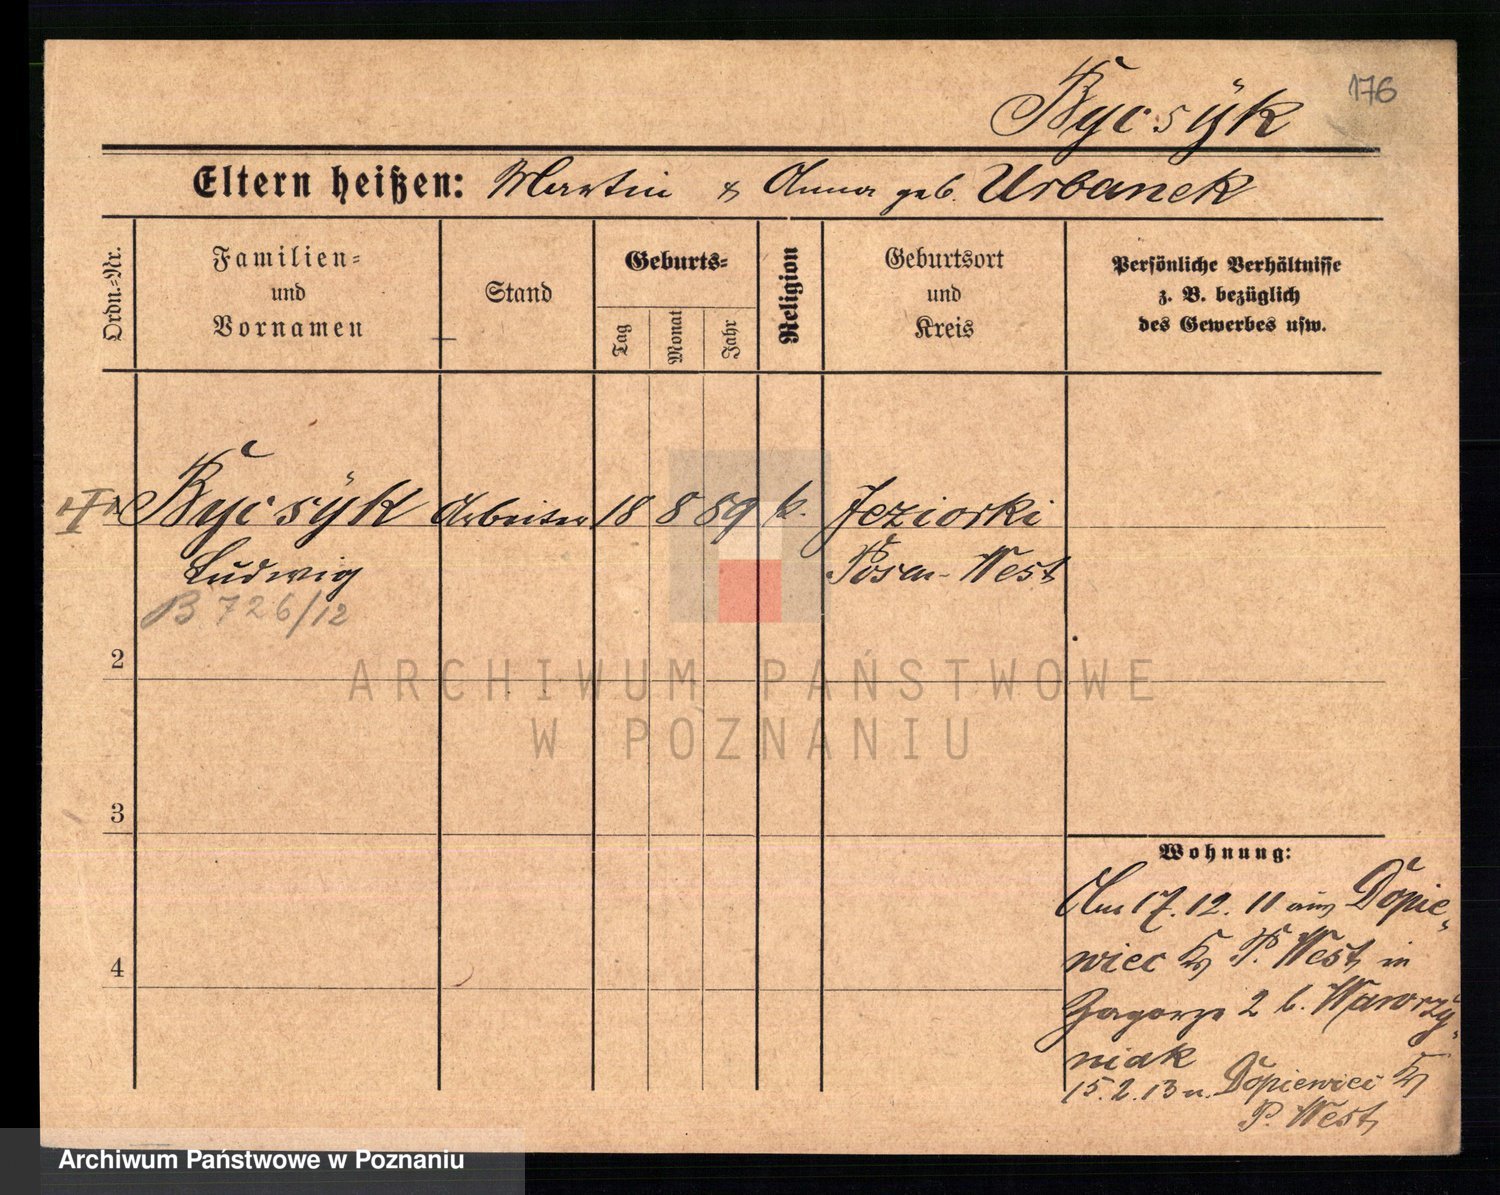 176
Bycsÿk
Eltern heißen: Martin & Anna geb. Urbanek
Ordn.-Nr.
Familien-
und
Vornamen
Stand
Geburts-
Tag
Monat
Jahr
Religion
Geburtsort
und
Kreis
Persönliche Verhältnisse
z. B. bezüglich
des Gewerbes usw.
Bycsÿk Arbeiter 18 8 89 k. Jeziorki
Ludwig Posen-West
B 726/12
2
3
4
Wohnung:
Am 17.12.11 aus Dopie-
wiec Kr P. West in
Zagorze 2 b. Wawrzy-
niak
15.2.13 n. Dopiewiec Kr
P. West
ARCHIWUM PAŃSTWOWE
W POZNANIU
Archiwum Państwowe w Poznaniu